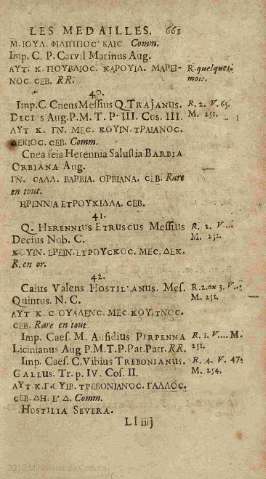 LES MEDAILLES. 663
Μ. ΙΟΥΛ. ΦΙΛΙΠΠΟC ΚΑΙC Comm.
Imp. C. P. Carvil Marinus Aug.
ΑΥΤ. Κ. ΠΟΥΒΛΙΟC. ΚΑΡΟΥΙΛ. ΜΑΡΕΙ- R. quelques-
ΝΟC. CΕΒ. RR. mois.
40.
Imp. C. Cneus Messius Q. TRAJANUS. R. 2. V. 65.
Decius Aug. P. M. T. P. III. Cos. III. M. 251.
ΑΥΤ Κ. ΓΝ. ΜΕC. ΚΟΥΙΝ. ΤΡΑΙΑΝΟC.
ΔΕΚΙΟC. CΕΒ. Comm.
Cnea seia Herennia Salustia BARBIA
ORBIANA Aug.
ΓΝ. CΑΛΛ. ΒΑΡΒΙΑ. ΟΡΒΙΑΝΑ. CΕΒ. Rare
en tout.
ΗΡΕΝΝΙΑ ΕΤΡΟΥΚΙΛΛΑ. CΕΒ.
41.
Q. HERENNIUS ETRUSCUS Messius R. 2. V ...
Decius Nob. C. M. 252.
ΚΟΥΙΝ. ΕΡΕΙΝ. ΕΤΡΟΥCΚΟC. ΜΕC. ΔΕΚ.
R. en or.
42.
Caius Valens HOSTILIANUS. Mes. R. 2. ou 3. V...
Quintus. N. C. M. 252.
ΑΥΤ Κ C ΟΥΑΛΕΝC. ΜΕC ΚΟΥ. ΤΝΟC.
CΕΒ. Rare en tout
Imp. Caes. M. Aufidius PERPENNA R. 1. V .... M.
Licinianus Aug P. M. T. P. Pat. Patr. RR. 252.
Imp. Caes. C. Vibius TREBONIANUS. R. 4. V. 47.
GALLUS. Tr. p. IV. Cos. II. M. 254.
ΑΥΤ Κ. ΓΑ ΥΙΒ. ΤΡΕΒΟΝΙΑΝΟC. ΓΑΛΛΟC.
CΕΒ. ΔΗ. Comm.
HOSTILIA SEVERA.
Ll iiij